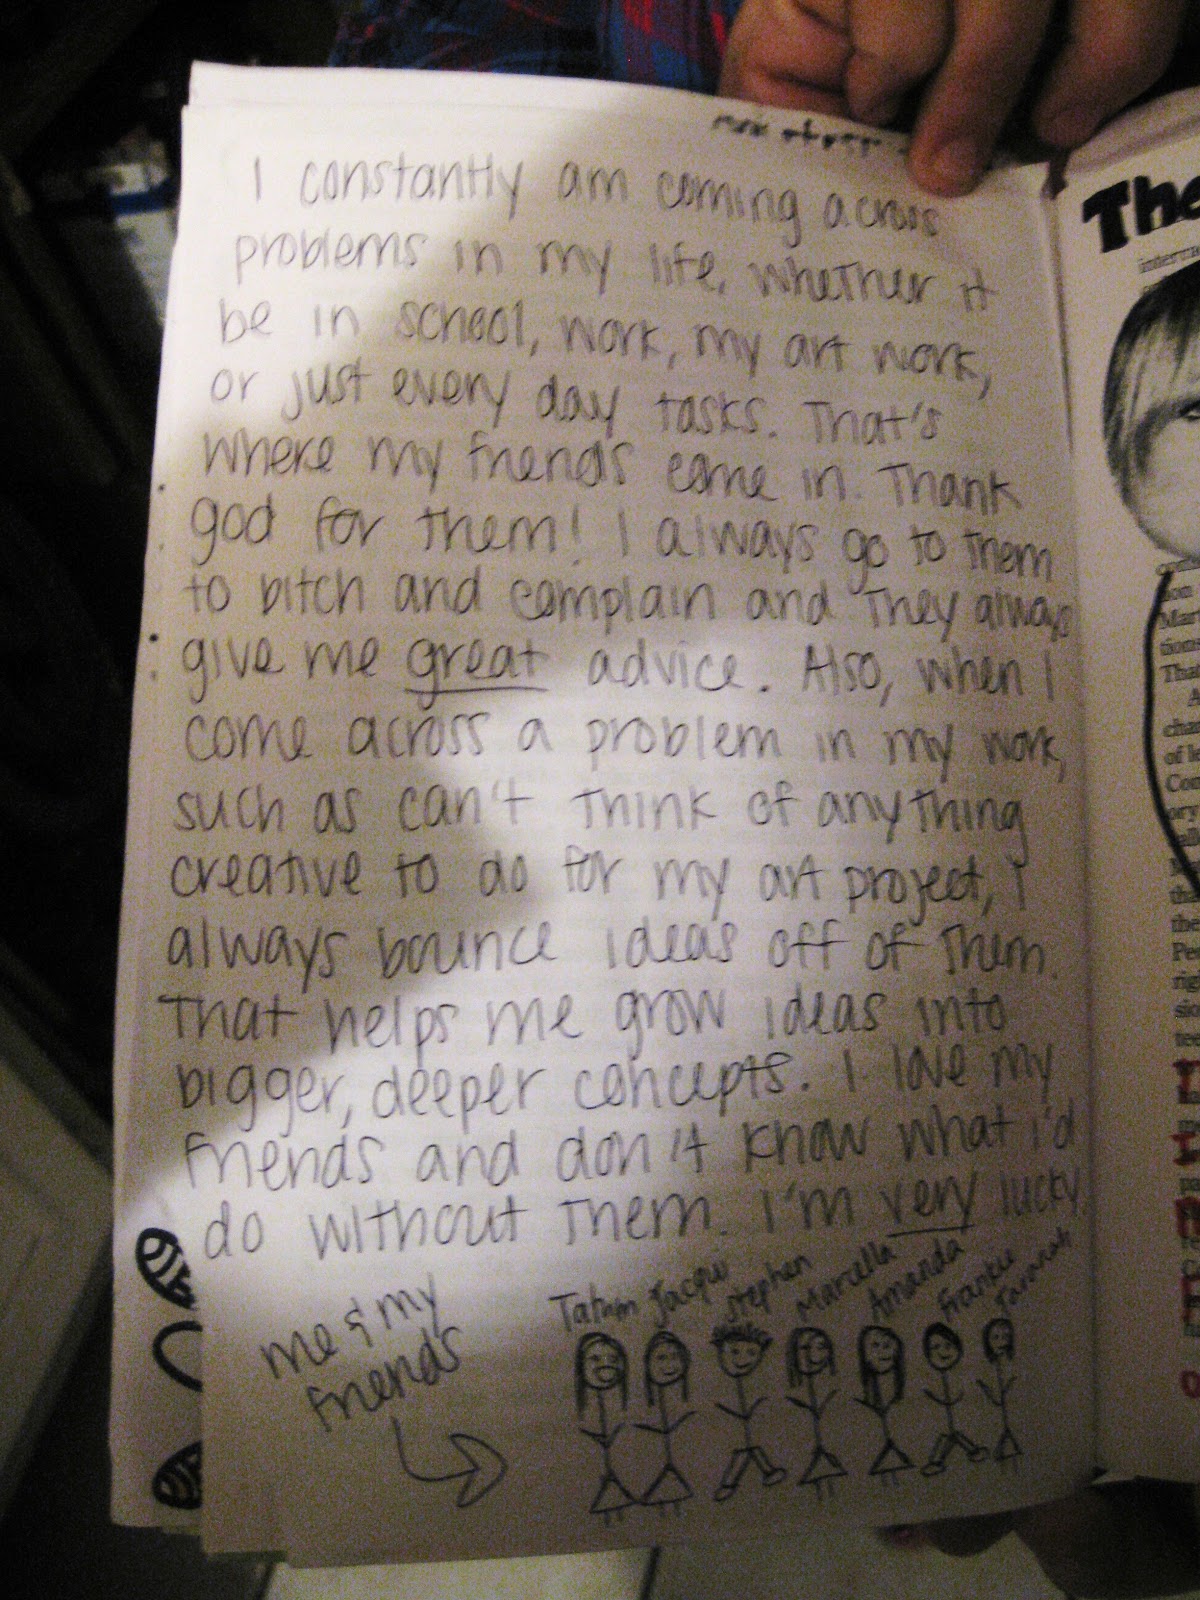 I constantly am coming across
problems in my life, whether it
be in school, work, my art work,
or just every day tasks. That's
where my friends come in. Thank
god for them! I always go to them
to bitch and complain and they always
give me great advice. Also, when I
come across a problem in my work,
such as can't think of anything
creative to do for my art project, I
always bounce ideas off of them.
That helps me grow ideas into
bigger, deeper concepts. I love my
friends and don't know what i'd
do without them. I'm very lucky.
me & my
friends
Tatum Jacqui Stephen Marcella Amanda Frankie
The